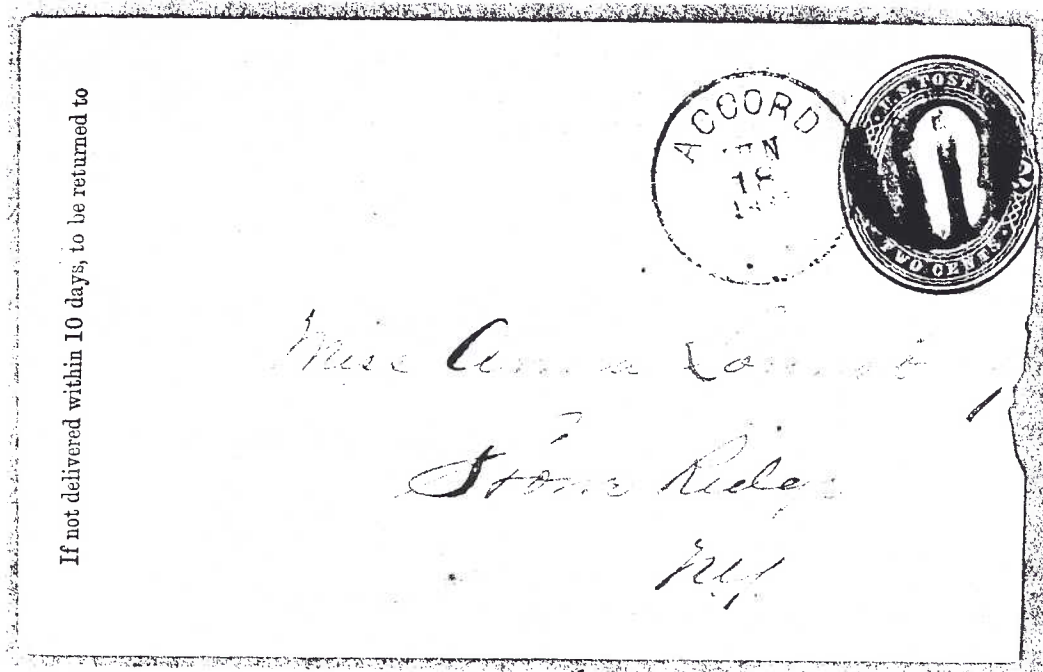 If not delivered within 10 days, to be returned to
ACCORD
18
U.S. POSTAGE
TWO CENTS
Miss Anna
Stone Ridge
NY